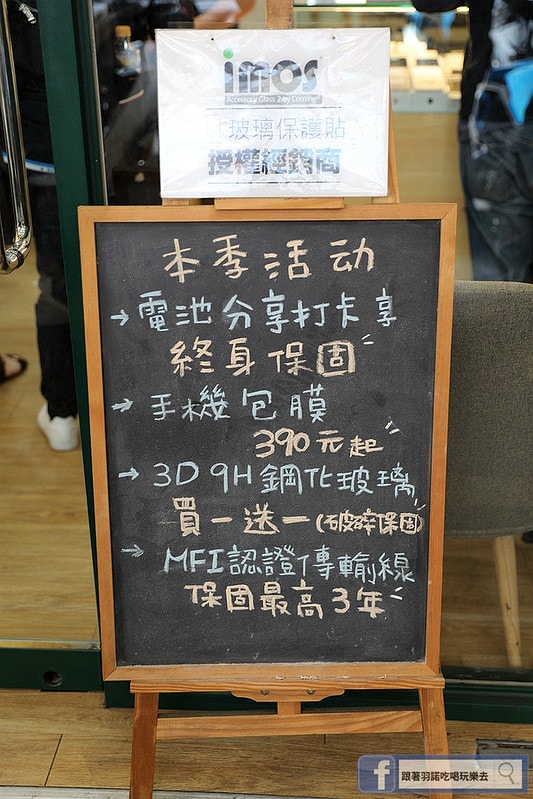 imos
Accessory Glass 2 by Corning®
玻璃保護貼
授權經銷商
本季活动
→電池分享打卡享
終身保固
→手機包膜
390元起
→3D 9H 鋼化玻璃
買一送一(破碎保固)
→MFI認證傳輸線
保固最高3年
f 跟著羽諾吃喝玩樂去